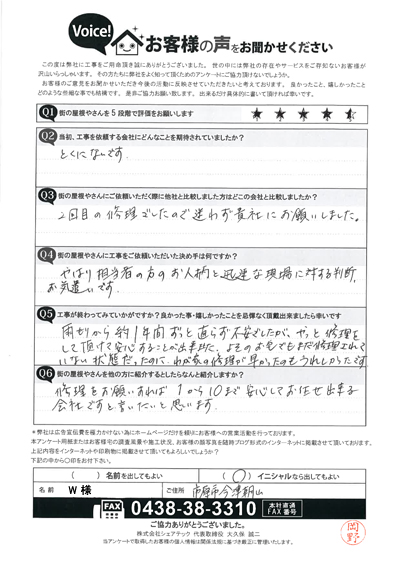 Voice!
お客様の声をお聞かせください
この度は弊社に工事をご用命頂き誠にありがとうございました。世の中には弊社の存在やサービスをご存知ないお客様が
沢山いらっしゃいます。その方たちに弊社をよく知って頂くためのアンケートにご協力頂けないでしょうか。
お客様のご意見をお聞かせいただき今後の活動に反映させていただきたいと考えております。良かったこと、嬉しかったこと
どのような些細な事でも結構です。是非ご協力お願い致します。出来るだけ具体的に書いて頂ければ幸いです。
Q1 街の屋根やさんを5段階で評価をお願いします ★ ★ ★ ★ ★
Q2 当初、工事を依頼する会社にどんなことを期待されていましたか?
とくになしです。
Q3 街の屋根やさんにご依頼いただく際に他社と比較しました方はどこの会社と比較しましたか?
2回目の修理でしたので迷わず貴社にお願いしました。
Q4 街の屋根やさんに工事をご依頼いただいた決め手は何ですか?
やはり担当者の方のお人柄と迅速な現場に対する判断、
お気遣いです。
Q5 工事が終わってみていかがですか?良かった事・嬉しかったことを忌憚なく頂戴出来ましたら幸いです
雨もりから約1年間ずっと直らず不安でしたが、やっと修理を
して頂けて安心することが出来ました。よそのお宅でもまだ修理されて
いない状態だったのに、わが家の修理が早かったのもうれしかったです
Q6 街の屋根やさんを他の方に紹介するとしたらなんと紹介しますか?
修理をお願いすれば1から10まで安心してお任せ出来る
会社ですと言いたいと思います。
*弊社は広告宣伝費を極力かけない為にホームページだけを頼りにお客様への営業活動を行っております。
本アンケート用紙またはお客様宅の調査風景や施工状況、お客様の顔写真を随時ブログ形式のインターネットに掲載させて頂いております。
上記内容をインターネットや印刷物に掲載させて頂いてもよろしいでしょうか?
下記の中から○印をお付下さい。
( ) 名前を出してもよい (○) イニシャルなら出してもよい
名前 W 様 ご住所 市原市今津朝山
FAX 0438-38-3310 本社直通 FAX番号
ご協力ありがとうございました。
株式会社シェアテック 代表取締役 大久保 誠二
当アンケートで取得したお客様の個人情報は関係法規に基づき厳正に管理いたします。
岡野